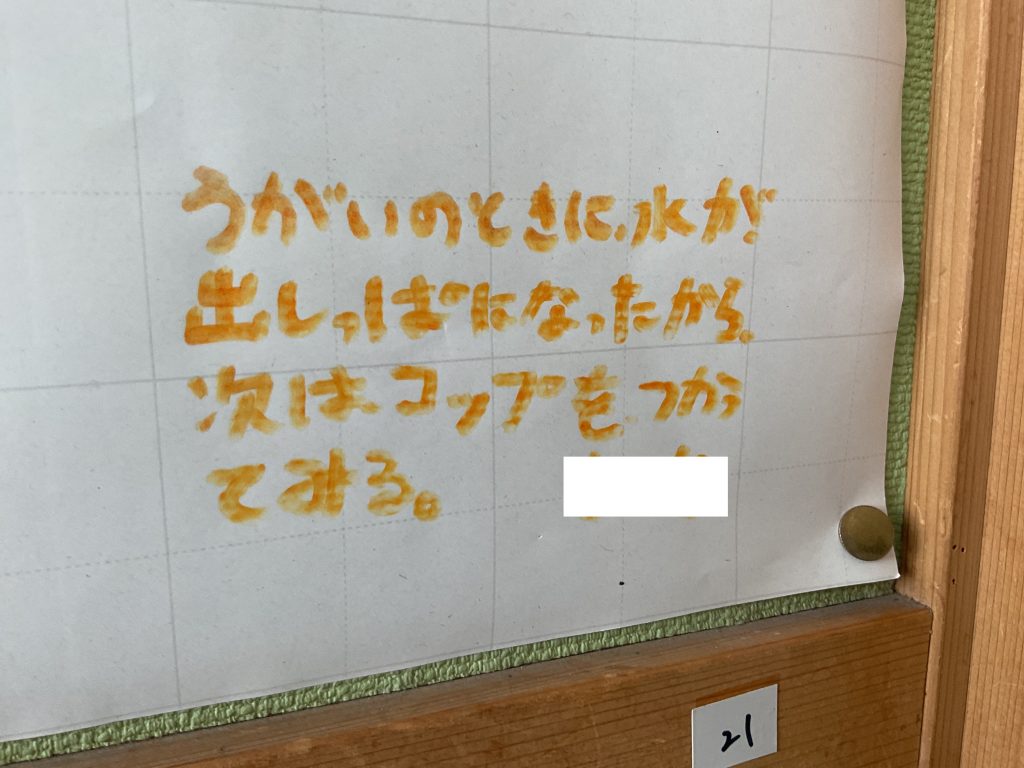 うがいのときに、水が
出しっぱになったから、
次はコップをつかっ
てみる。
21